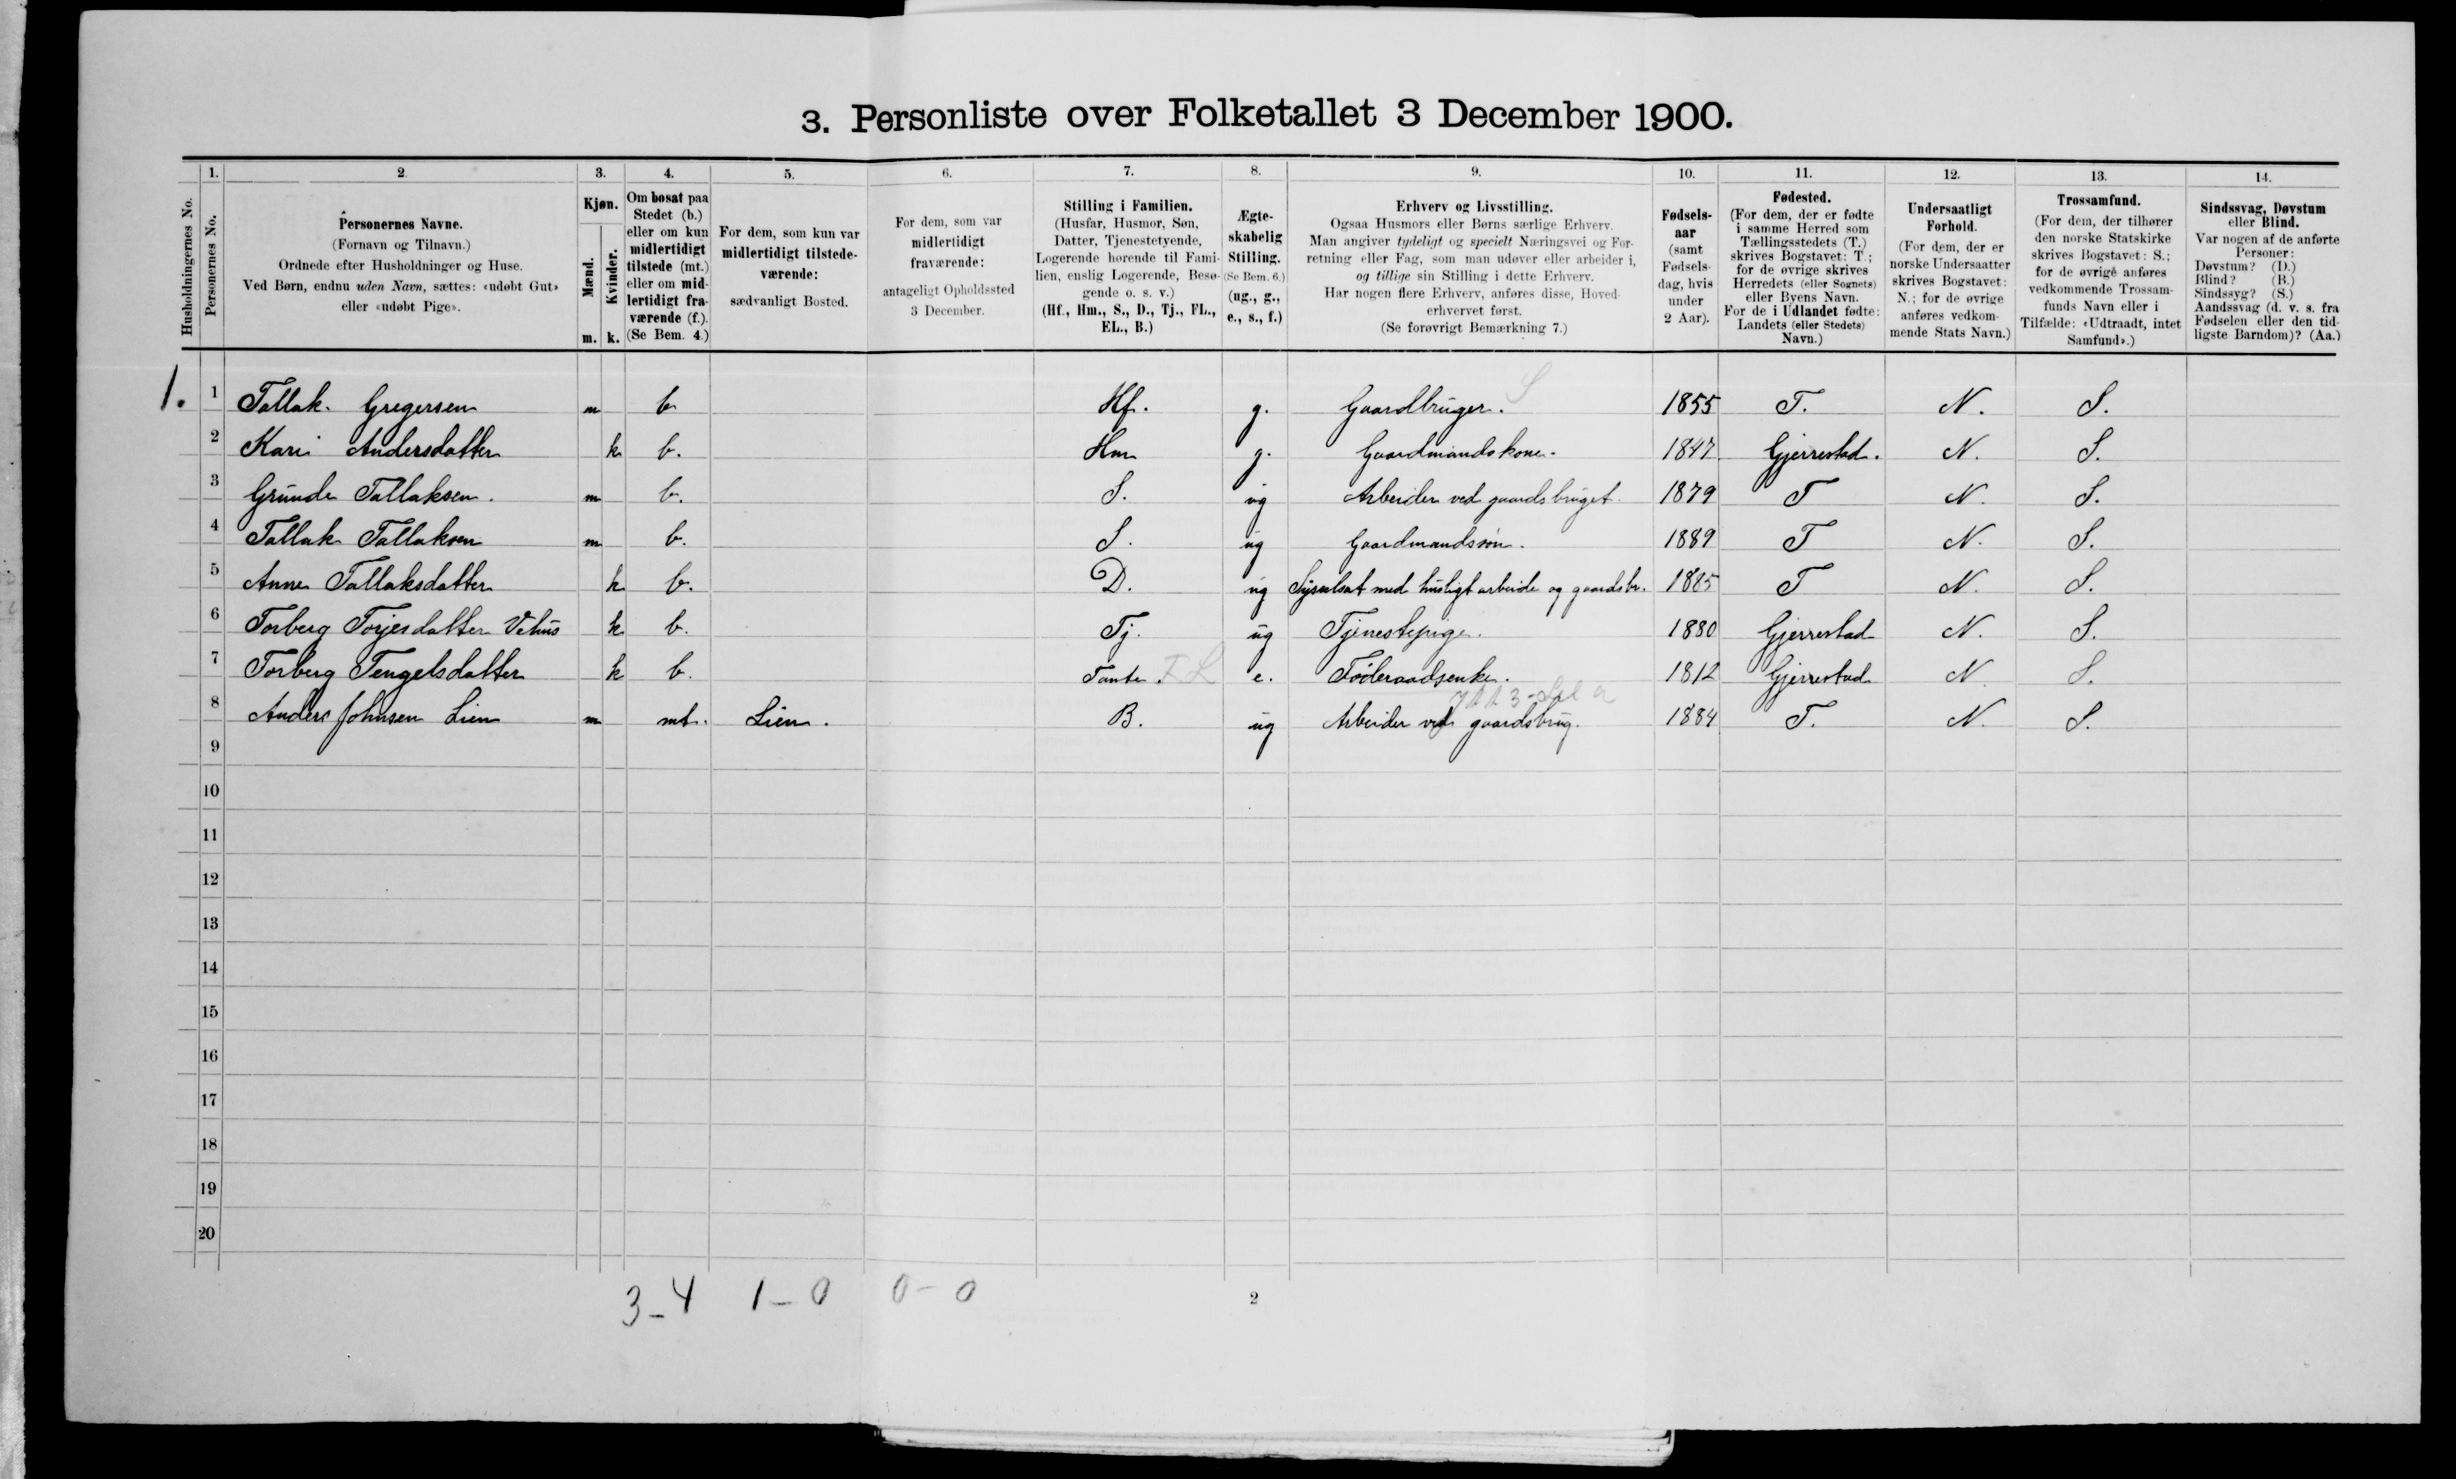 3. Personliste over Folketallet 3 December 1900.
1. 2. 3. 4. 5. 6. 7. 8. 9. 10. 11. 12. 13. 14.
Husholdningernes No.
Personernes No.
Personernes Navne.
(Fornavn og Tilnavn.)
Ordnede efter Husholdninger og Huse.
Ved Børn, endnu uden Navn, sættes: «udøbt Gut»
eller «udøbt Pige».
Kjøn.
Mænd.
Kvinder.
m. k.
Om bosat paa
Stedet (b.)
eller om kun
midlertidigt
tilstede (mt.)
eller om mid-
lertidigt fra-
værende (f.).
(Se Bem. 4.)
For dem, som kun var
midlertidigt tilstede-
værende:
sædvanligt Bosted.
For dem, som var
midlertidigt
fraværende:
antageligt Opholdssted
3 December.
Stilling i Familien.
(Husfar, Husmor, Søn,
Datter, Tjenestetyende,
Logerende hørende til Fami-
lien, enslig Logerende, Besø-
gende o. s. v.)
(Hf., Hm., S., D., Tj., FL.,
EL., B.)
Ægte-
skabelig
Stilling.
(Se Bem. 6.)
(ug., g.,
e., s., f.)
Erhverv og Livsstilling.
Ogsaa Husmors eller Børns særlige Erhverv.
Man angiver tydeligt og specielt Næringsvei og For-
retning eller Fag, som man udøver eller arbeider i,
og tillige sin Stilling i dette Erhverv.
Har nogen flere Erhverv, anføres disse, Hoved-
erhvervet først.
(Se forøvrigt Bemærkning 7.)
Fødsels-
aar
(samt
Fødsels-
dag, hvis
under
2 Aar).
Fødested.
(For dem, der er fødte
i samme Herred som
Tællingsstedets (T.)
skrives Bogstavet: T.;
for de øvrige skrives
Herredets (eller Sognets)
eller Byens Navn.
For de i Udlandet fødte:
Landets (eller Stedets)
Navn.)
Undersaatligt
Forhold.
(For dem, der er
norske Undersaatter
skrives Bogstavet:
N.; for de øvrige
anføres vedkom-
mende Stats Navn.)
Trossamfund.
(For dem, der tilhører
den norske Statskirke
skrives Bogstavet: S.;
for de øvrige anføres
vedkommende Trossam-
funds Navn eller i
Tilfælde: «Udtraadt, intet
Samfund».)
Sindssvag, Døvstum
eller Blind.
Var nogen af de anførte
Personer:
Døvstum? (D.)
Blind? (B.)
Sindssyg? (S.)
Aandssvag (d. v. s. fra
Fødselen eller den tid-
ligste Barndom)? (Aa.)
1. 1 Tallak Gregersen m b Hf. g. Gaardbruger. S 1855 T. N. S.
2 Kari Andersdatter k b. Hm g. Gaardmandskone. 1847 Gjerrestad. N. S.
3 Grunde Tallaksen. m b. S. ug Arbeider ved gaardsbruget. 1879 T N. S.
4 Tallak Tallaksen m b. S. ug Gaardmandssøn. 1889 T N. S.
5 Anne Tallaksdatter k b. D. ug Sysselsat med husligt arbeide og gaardsbr. 1885 T N. S.
6 Torberg Torjesdatter Vehus k b. Tj. ug Tjenestepige. 1880 Gjerrestad N. S.
7 Torberg Tengelsdatter k b. Tante. FL e. Føderaadsenke. 1812 Gjerrestad N S.
8 Anders Johnsen Lien m mt. Lien. B. ug Arbeider ved gaardsbrug. 1884 T. N. S.
9
10
11
12
13
14
15
16
17
18
19
20
3-4 1-0 0-0
2